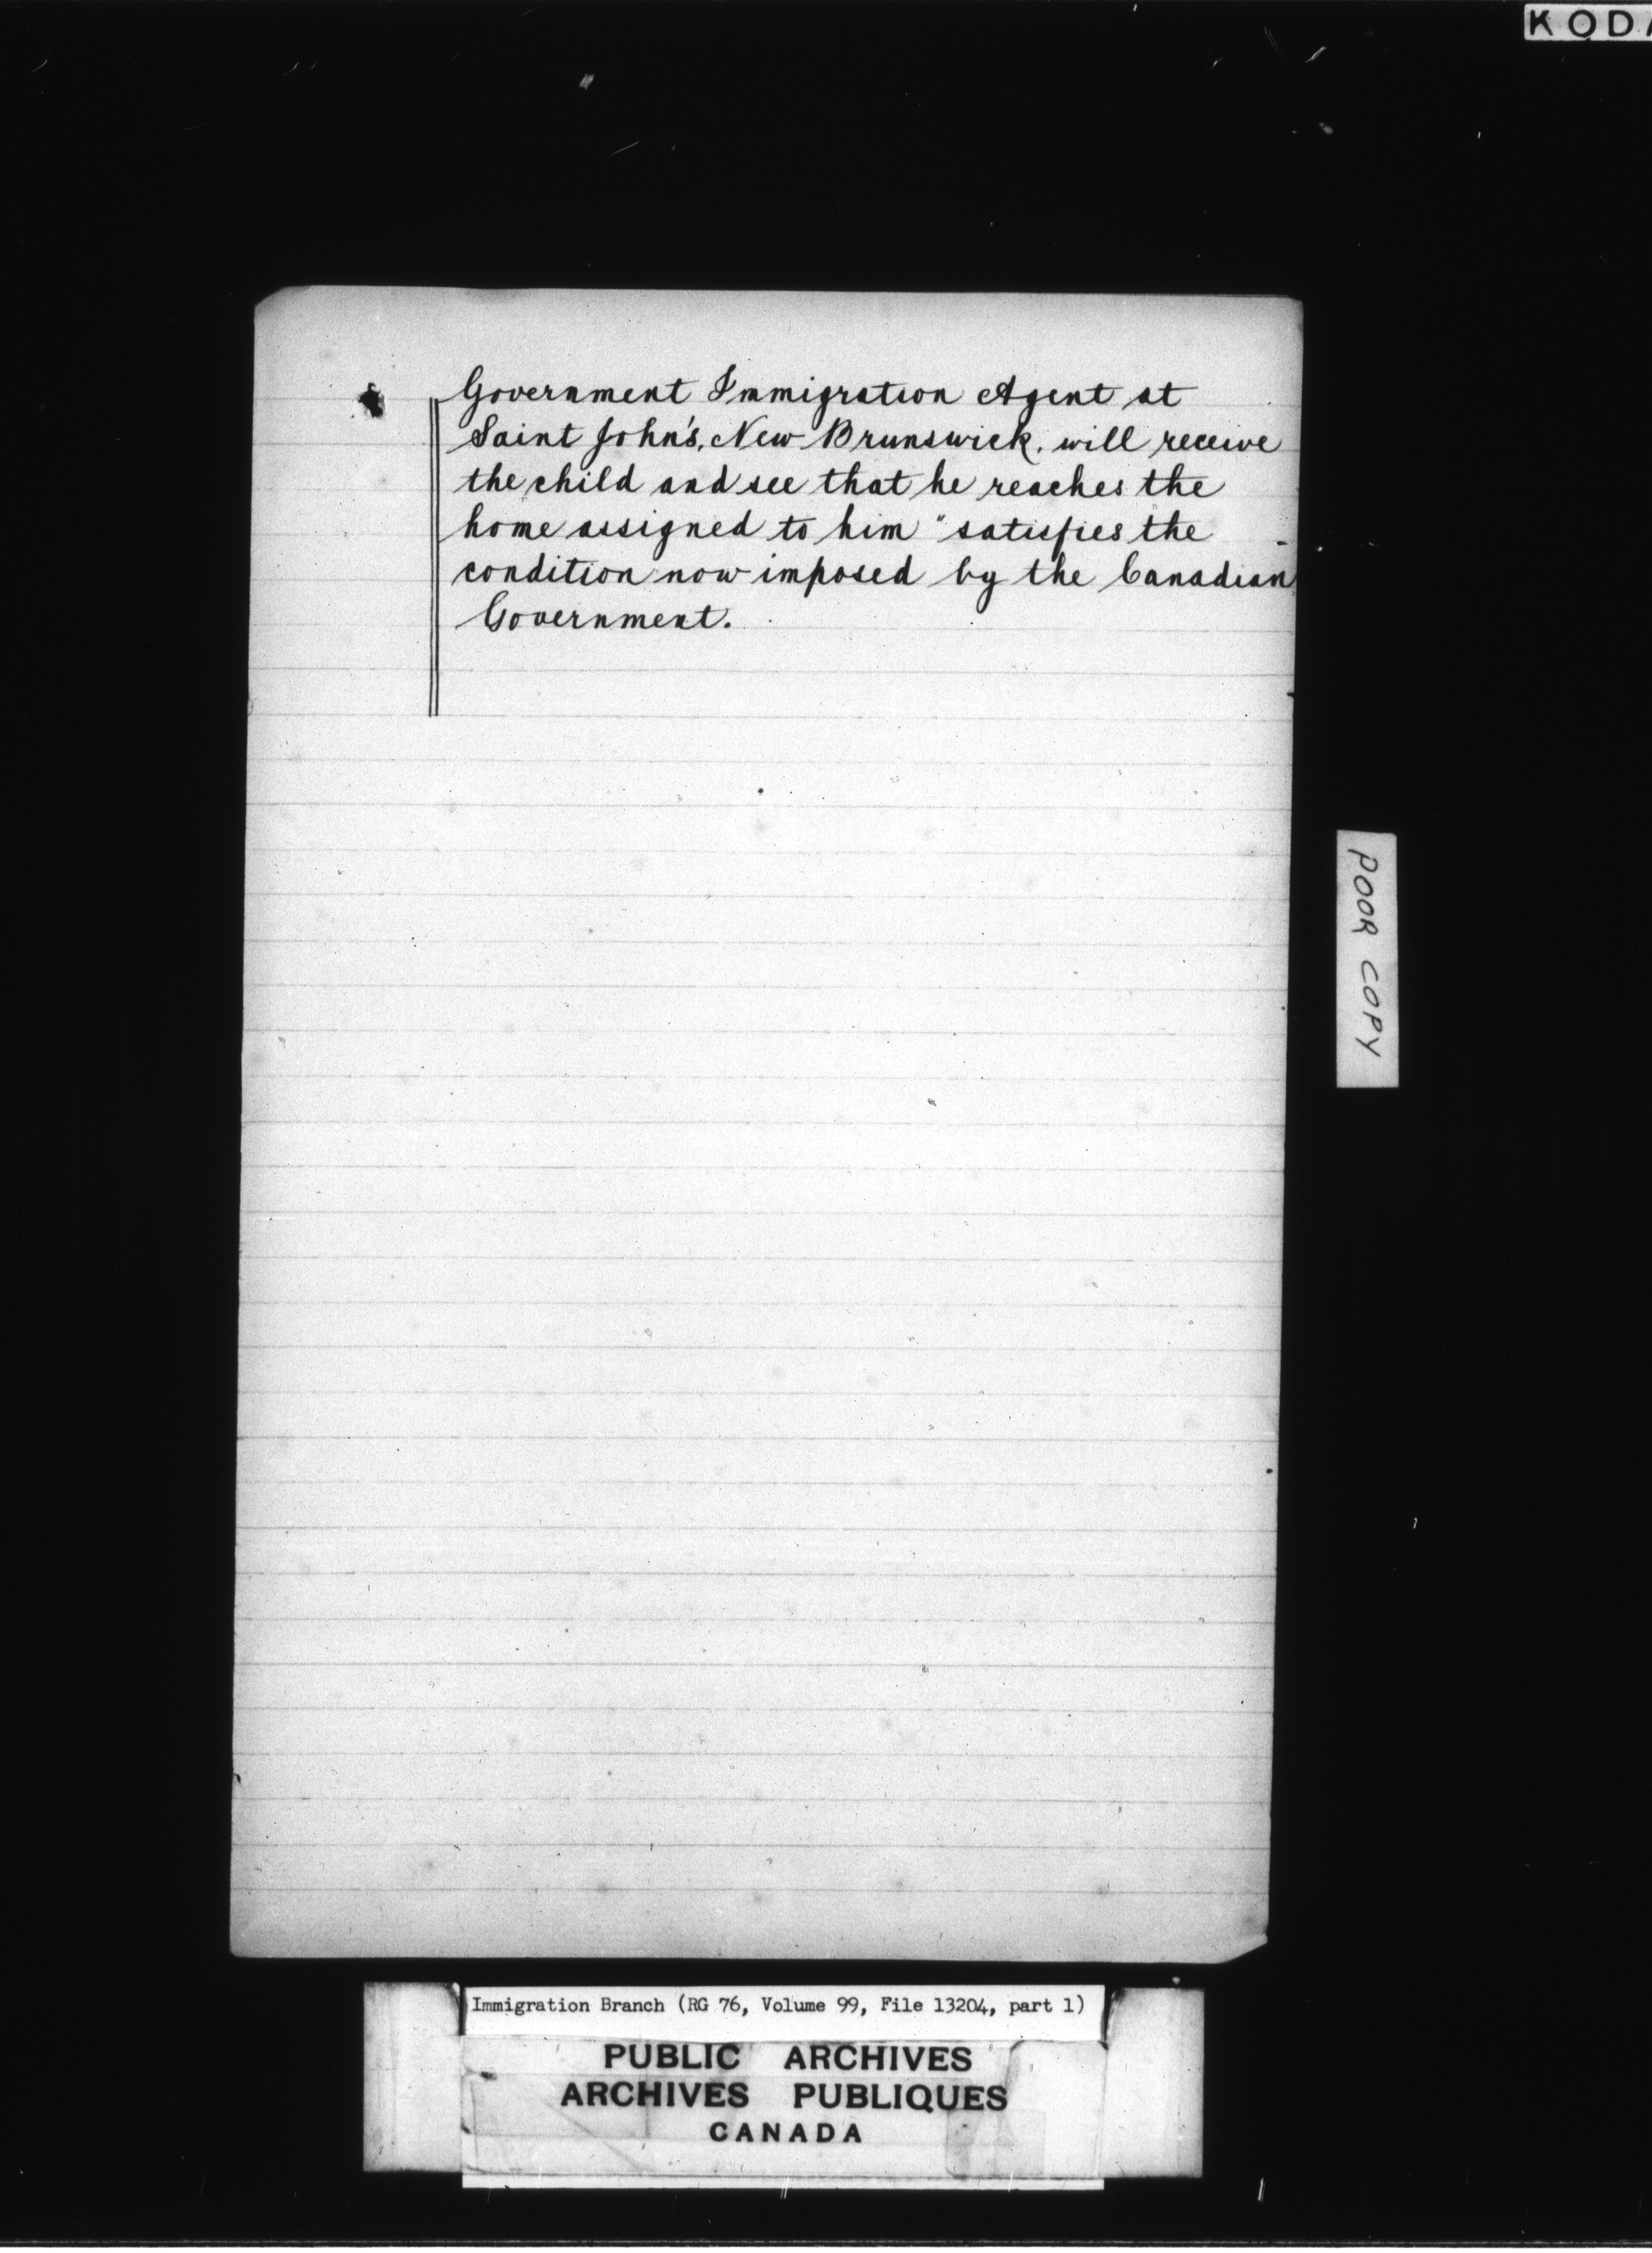 KODA
Government Immigration Agent at
Saint John's, New Brunswick, will receive
the child and see that he reaches the
home assigned to him" satisfies the
condition now imposed by the Canadian
Government.
POOR COPY
Immigration Branch (RG 76, Volume 99, File 13204, part 1)
PUBLIC ARCHIVES
ARCHIVES PUBLIQUES
CANADA